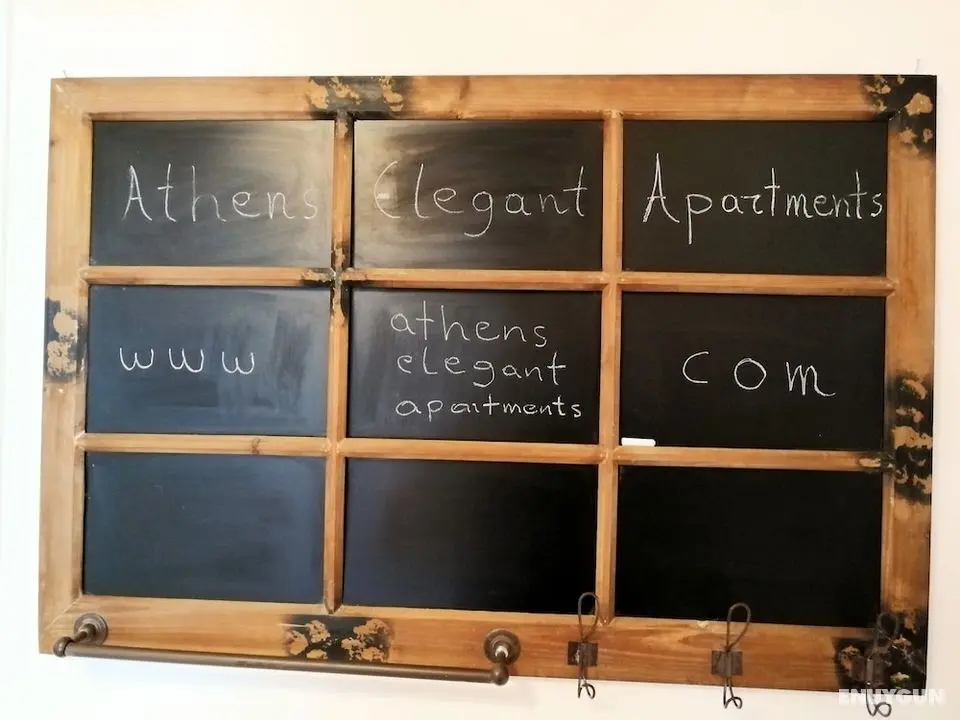 Athens Elegant Apartments
www athens com
elegant
apartments
ENUYGUN